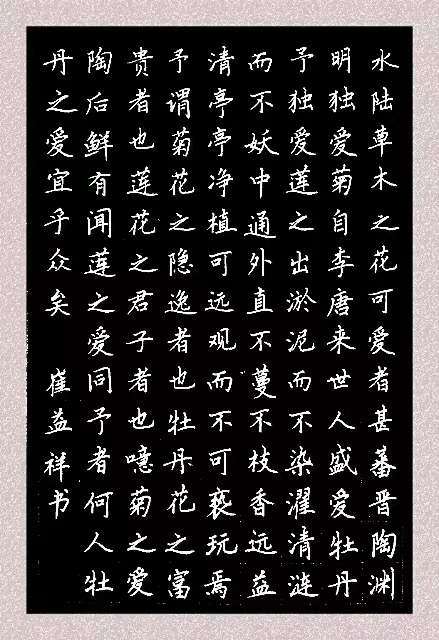 水陆草木之花可爱者甚蕃晋陶渊
明独爱菊自李唐来世人盛爱牡丹
予独爱莲之出淤泥而不染濯清涟
而不妖中通外直不蔓不枝香远益
清亭亭净植可远观而不可亵玩焉
予谓菊花之隐逸者也牡丹花之富
贵者也莲花之君子者也噫菊之爱
陶后鲜有闻莲之爱同予者何人牡
丹之爱宜乎众矣 崔益祥书